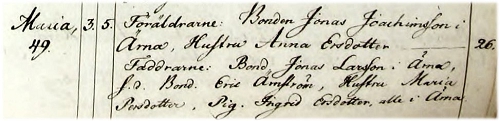 Maria, 3. 5. Föräldrarne: Bonden Jonas Joachimsson i
49. Åma, Hustru Anna Ersdotter 26.
Faddrarne: Bond. Jonas Larsson i Åma,
f.d. Bond. Eric Amström, Hustru Maria
Persdotter, Pig. Ingrid Ersdotter, alle i Åma.